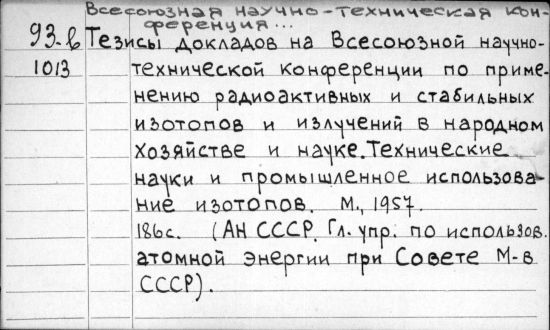 Всесоюзная научно-техническая кон-
ференция...
93.в Тезисы докладов на Всесоюзной научно-
1013 технической конференции по приме-
нению радиоактивных и стабильных
изотопов и излучений в народном
хозяйстве и науке. Технические
науки и промышленное использова-
ние изотопов. М., 1957.
186с. (АН СССР. Гл. упр. по использов.
атомной энергии при Совете М-в
СССР).